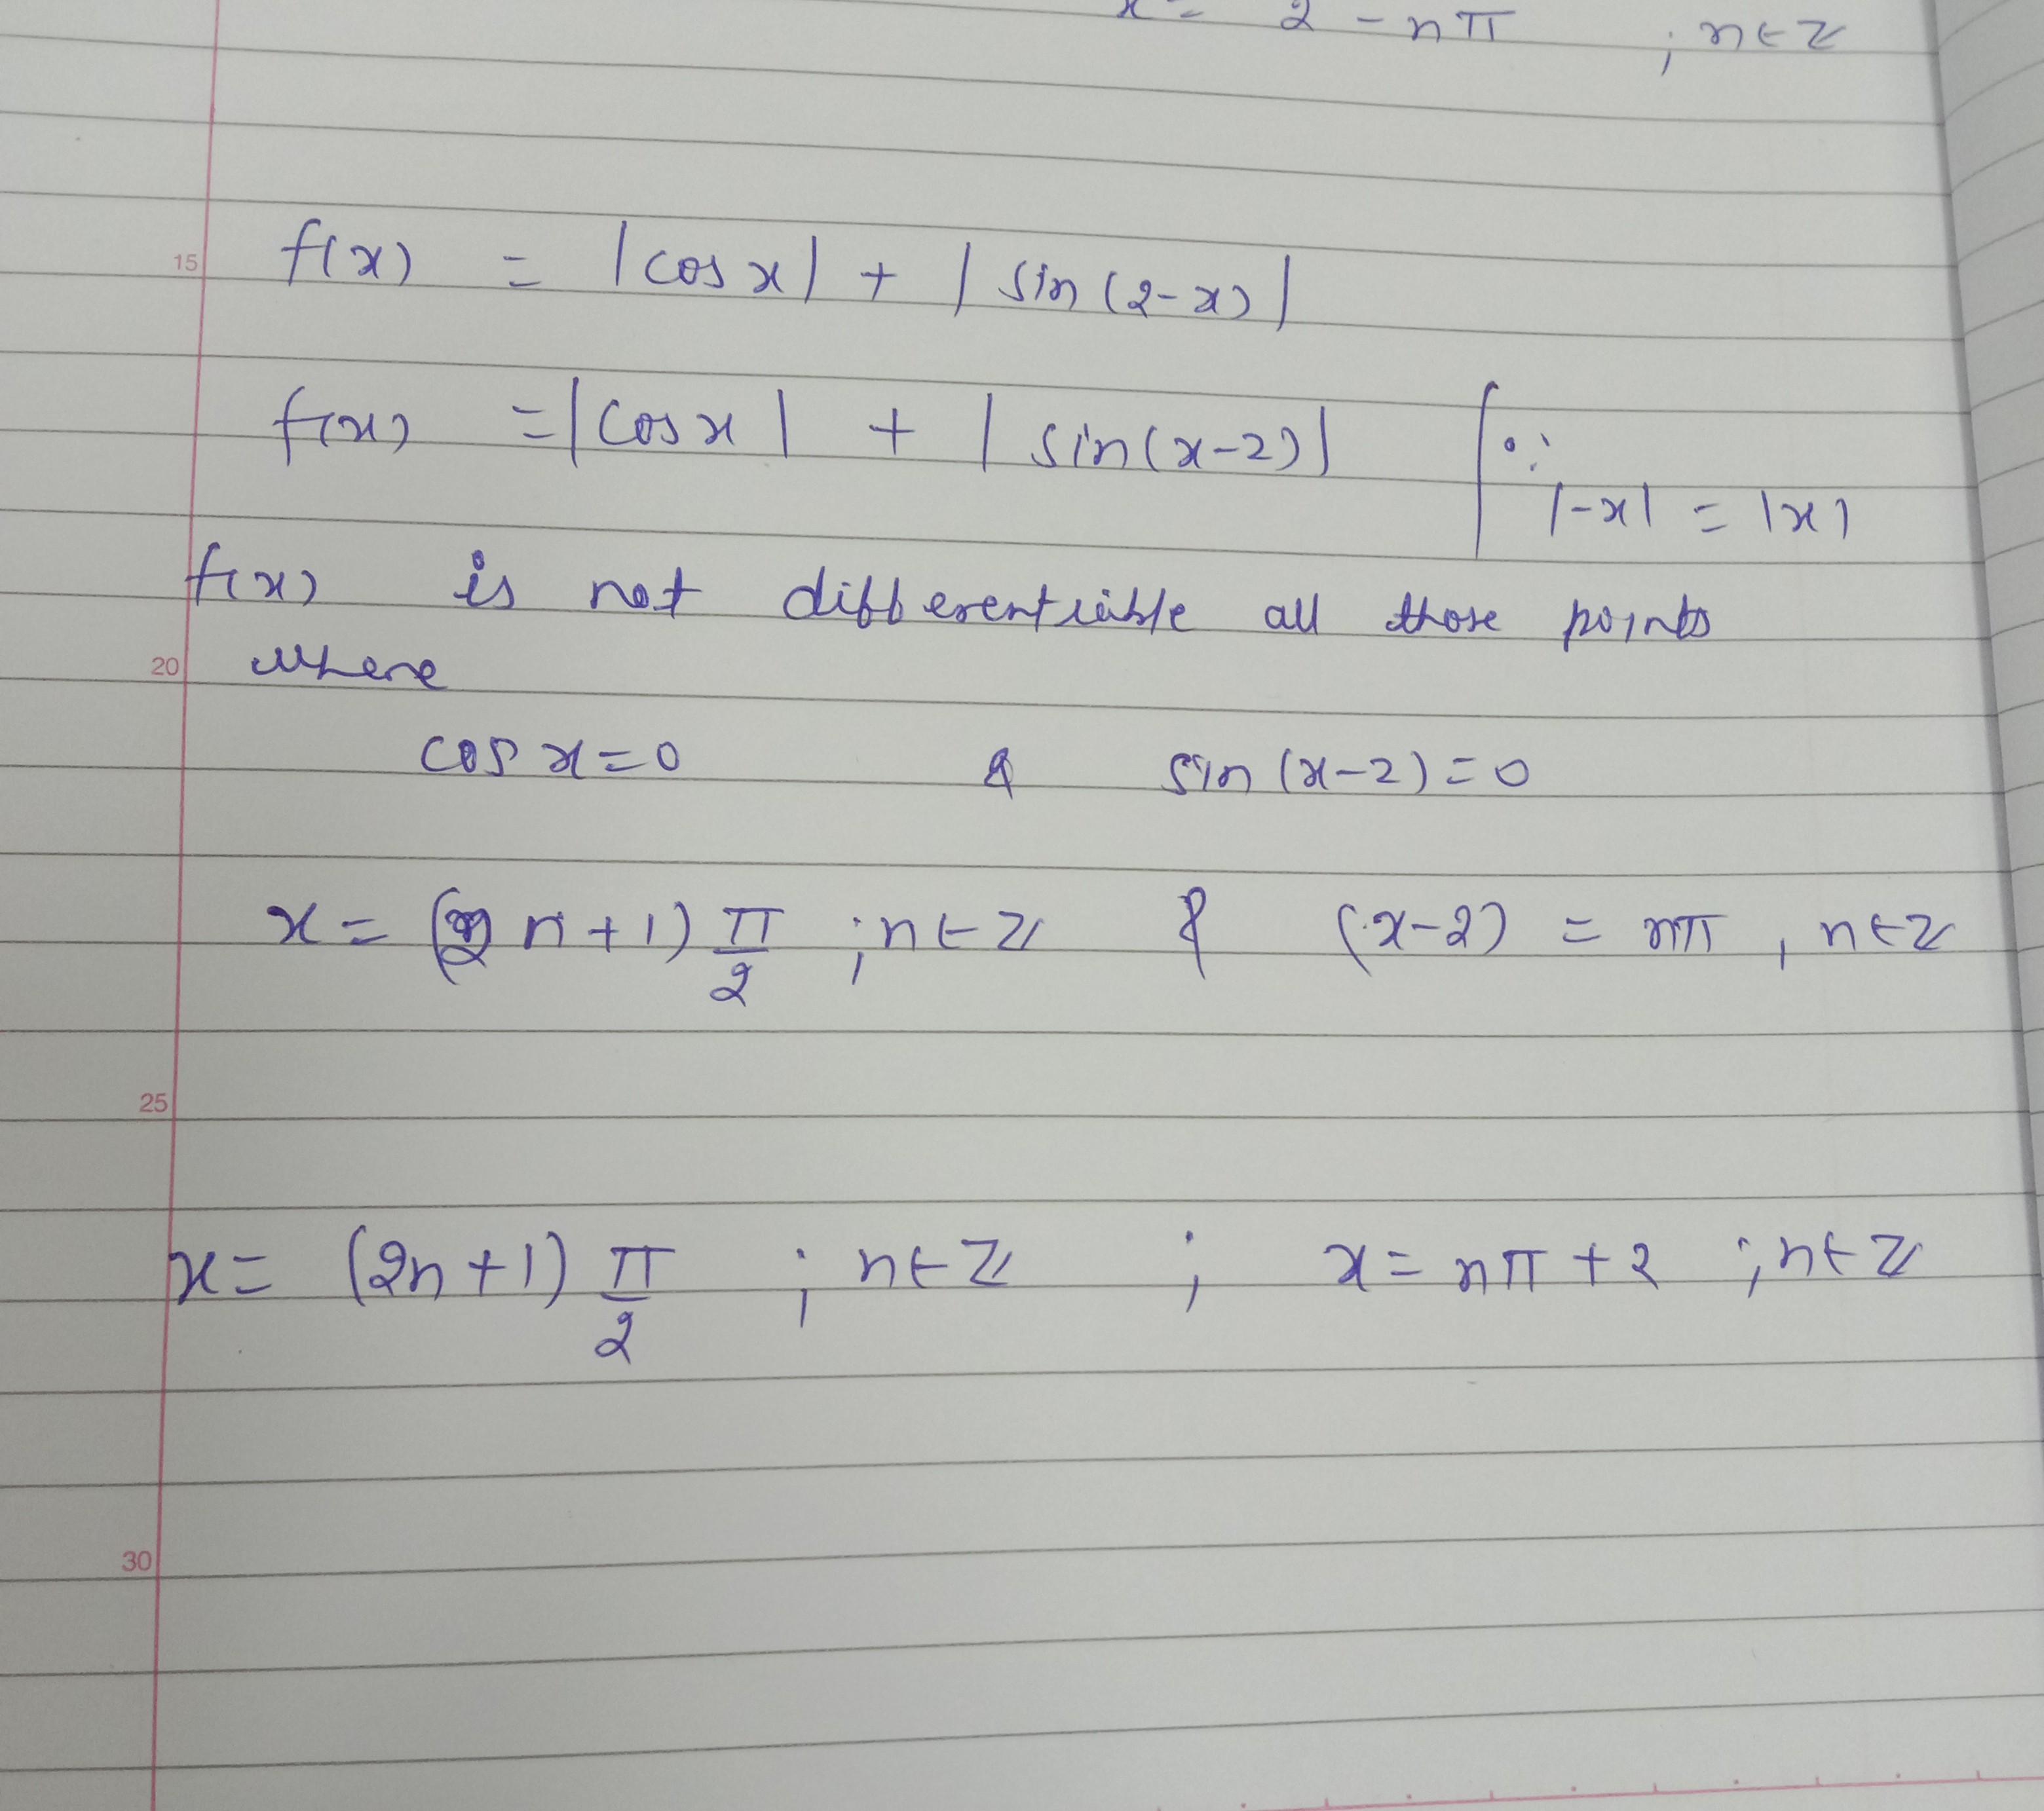 x = 2 - nπ ; n∈Z
15 f(x) = |cos x| + | sin (2-x) |
f(x) = |cos x | + | sin(x-2)| [∵
|-x| = |x|
f(x) is not differentiable all those points
20 where
cos x=0 & sin (x-2) = 0
x = (2n+1) π/2 ; n∈Z & (x-2) = nπ , n∈Z
25
x = (2n+1) π/2 ; n∈Z ; x = nπ + 2 ; n∈Z
30